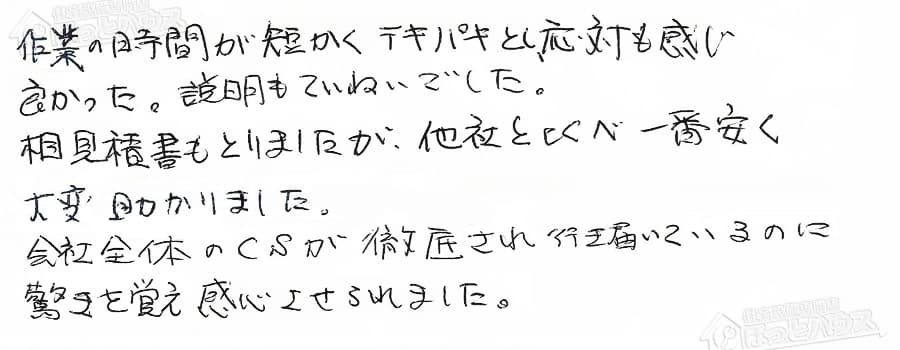 作業の時間が短かくテキパキとし、応対も感じ
良かった。説明もていねいでした。
相見積書もとりましたが、他社と比べ一番安く
大変助かりました。
会社全体のCSが徹底され行き届いているのに
驚きを覚え感心させられました。